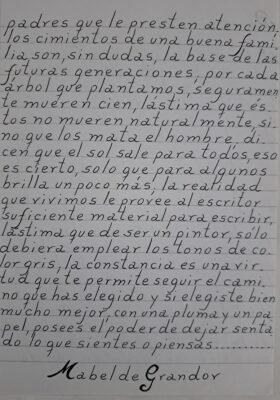 padres que le presten atención,
los cimientos de una buena fami-
lia, son, sin dudas, la base de las
futuras generaciones, por cada
árbol que plantamos, seguramen
te mueren cien, lástima que és
tos no mueren naturalmente, si-
no que los mata el hombre, di-
cen que el sol sale para todos, eso
es cierto, solo que para algunos
brilla un poco más, la realidad
que vivimos le provee al escritor
suficiente material para escribir,
lástima que de ser un pintor, sólo
debiera emplear los tonos de co-
lor gris, la constancia es una vir-
tud que te permite seguir el cami-
no que has elegido y si elegiste bien
mucho mejor, con una pluma y un pa
pel, posees el poder de dejar senta
do lo que sientes o piensas..........
Mabel de Grandor